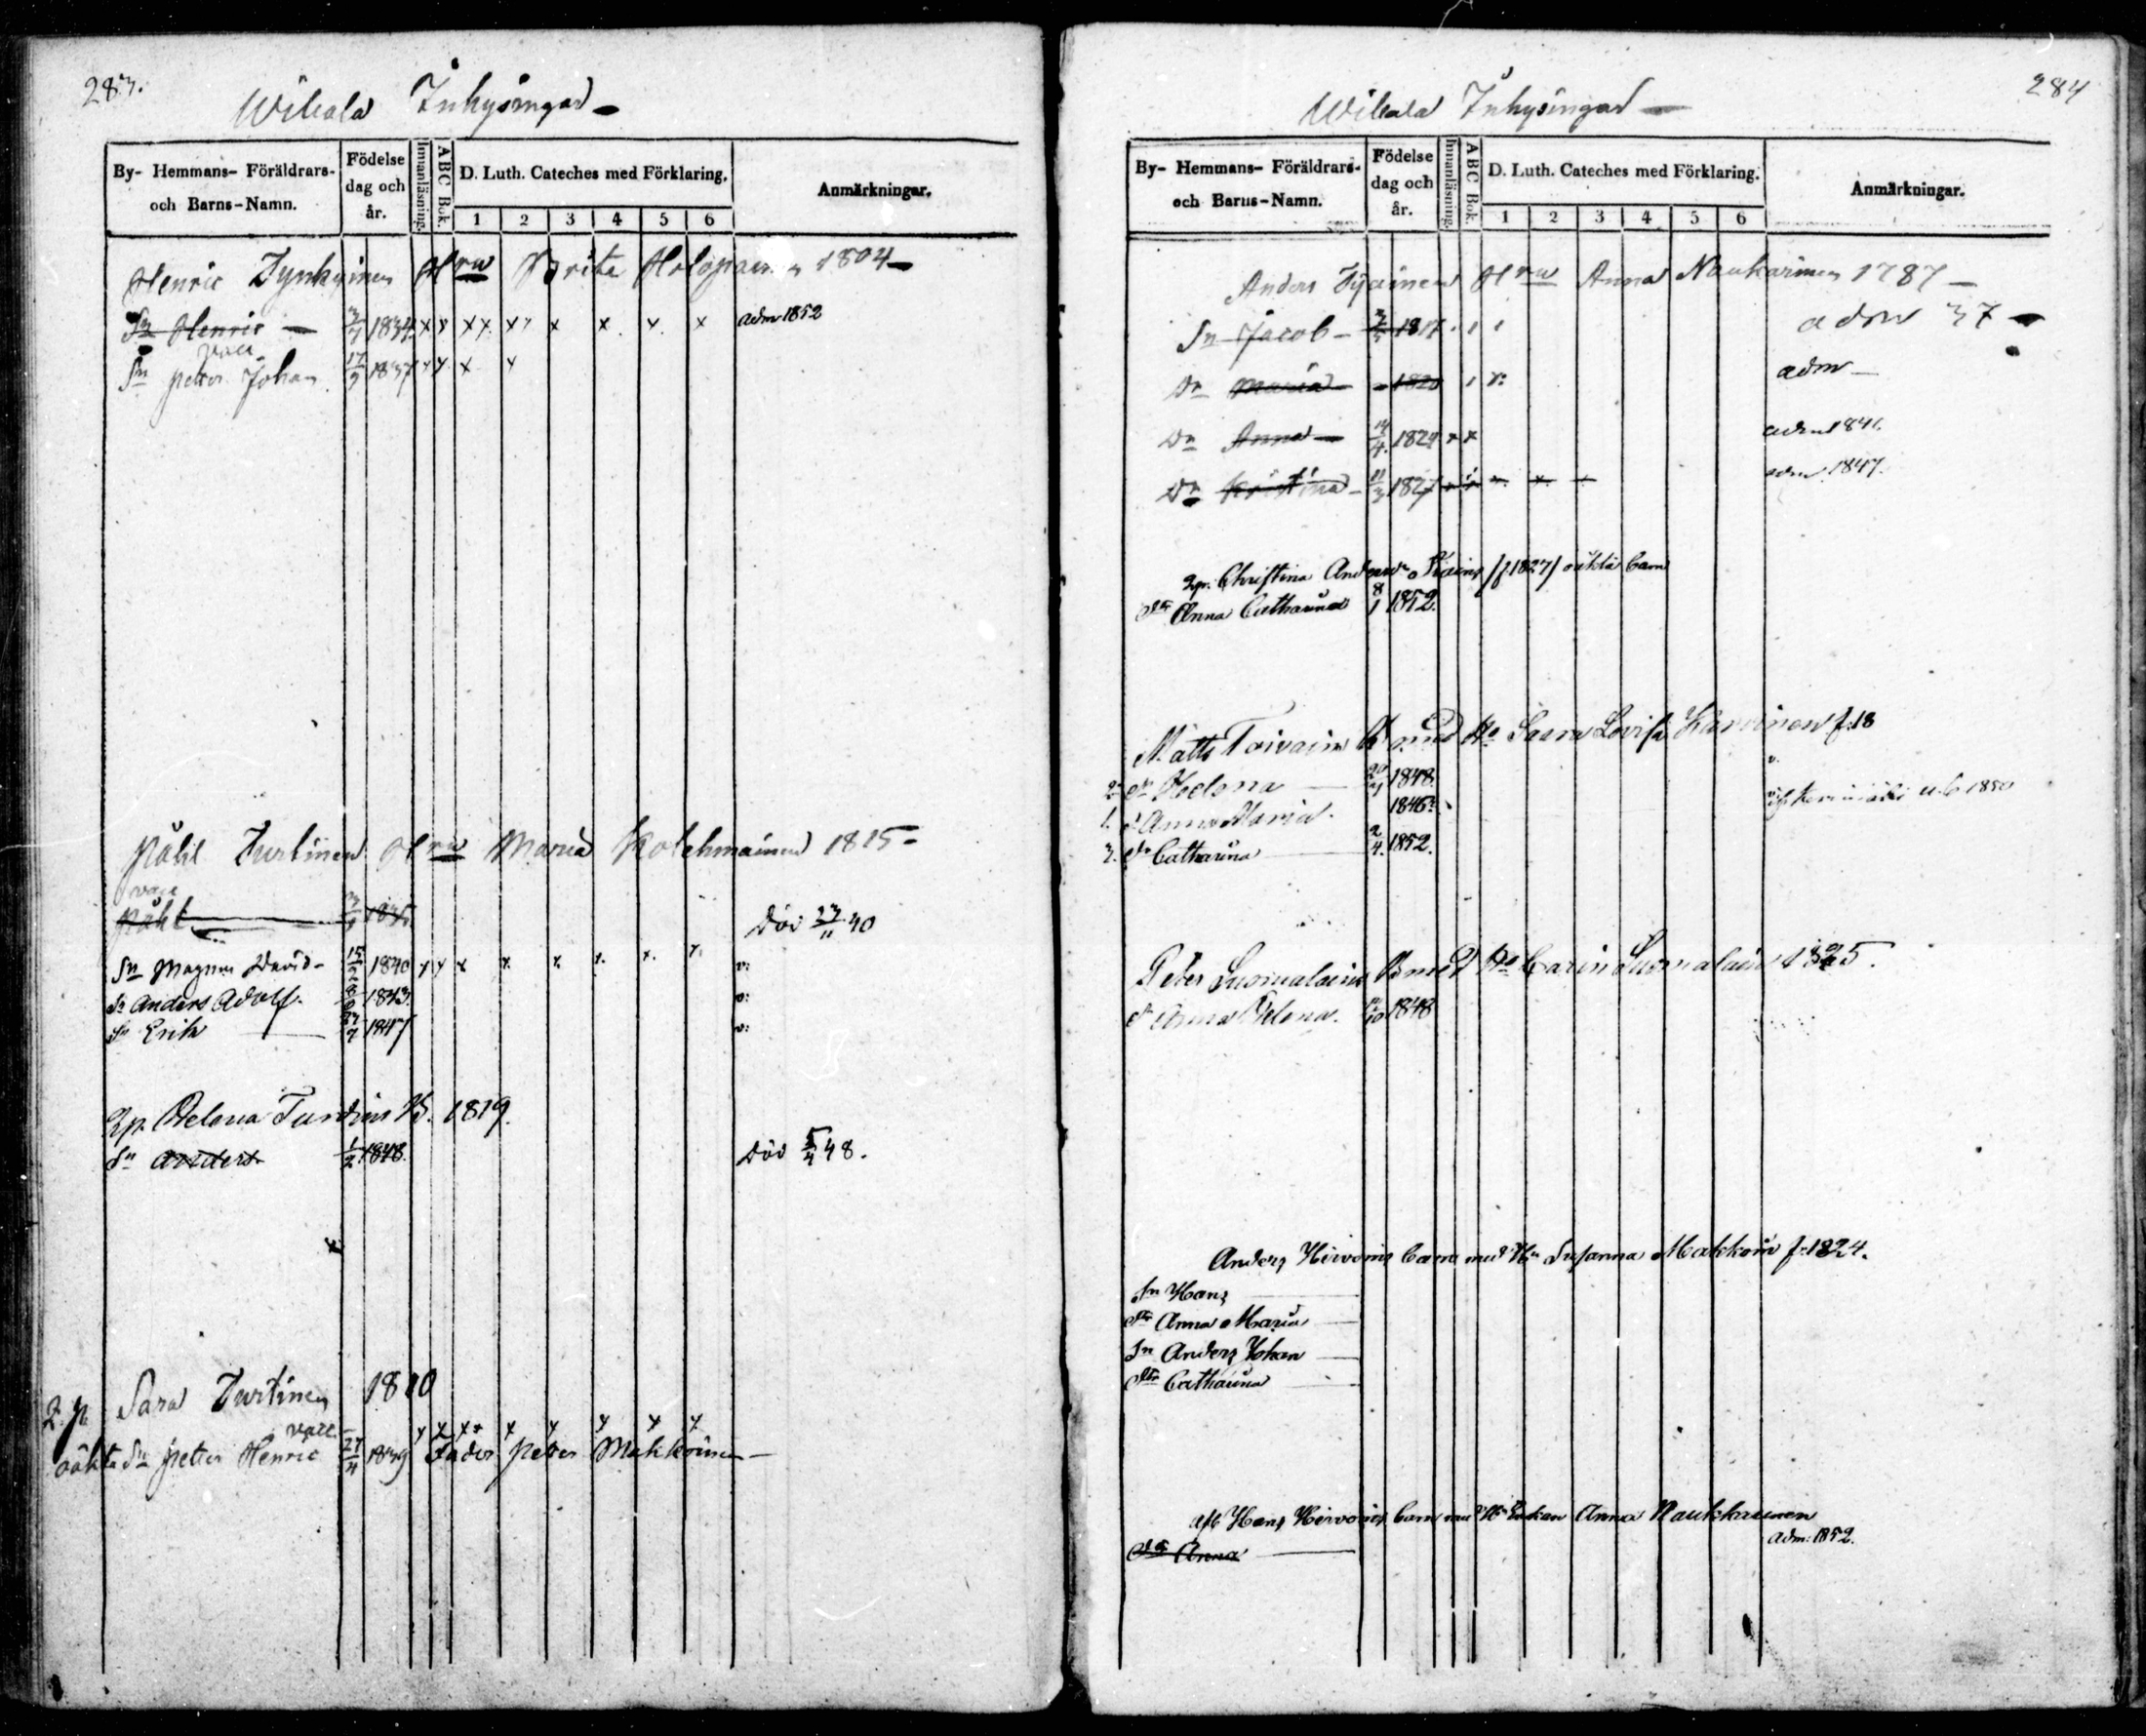 283.
Wihala Inhysingar
By- Hemmans- Föräldrars- och Barns-Namn.
Födelse dag och år.
Innanläsning.
ABC Bok.
D. Luth. Cateches med Förklaring.
1 2 3 4 5 6
Anmärkningar.
Henric Tynkyinen Hru Brita Holopainen 1804
Sn Henric 3/7 1834 x x x x x x x x x x adm 1852
vacc
Sn Petter Johan 17/9 1837 x x x x
Påhl Turtinen Hru Maria Kolehmainen 1815
vacc
Påhl Död 23/11 40
Sn Magnus David 15/2 1840 x x x x x x x x v:
Sn Anders Adolf. 1843. v:
Sn Erik 1847 v:
Qp. Helena 1819.
Sn Anders 1/2 1848. Död 5/4 48.
Q. p. Sara Turtinen 1810
vacc x x x x x x x x x
oäkta Sn Petter Henric 27/4 1839 Fader Peter Makkoinen
284
Wihala Inhysingar
By- Hemmans- Föräldrars- och Barns-Namn.
Födelse dag och år.
Innanläsning.
ABC Bok.
D. Luth. Cateches med Förklaring.
1 2 3 4 5 6
Anmärkningar.
Anders Hru Anna Naukarinen 1787
Sn Jacob 1817 adm 37
Dr Maria 1820 adm
Dr Anna 1824 x x adm 1841.
Dr Kristina 11/3 1827 adm 1847.
Qp. Christina /f 1827/ oäkta barn
Dr Anna Catharina 8/1 1852.
Matts Toivain B med Ho Saara Lovisa f. 18
2. Dr Helena 1848. v.
1. Anna Maria. 1846. 1850
3. Dr Catharina 2/4. 1852.
Peter Suomalain B med Ho Carin Suomalain 1825.
Dr Anna Helena. 1848
Anders Hirvoin barn med Hu Susanna Makkoin f. 1824.
Sn Hans
Dr Anna Maria
Sn Anders Johan
Dr Catharina
Hans Hirvoin barn med Anna Naukkarinen
Dr Anna adm: 1852.